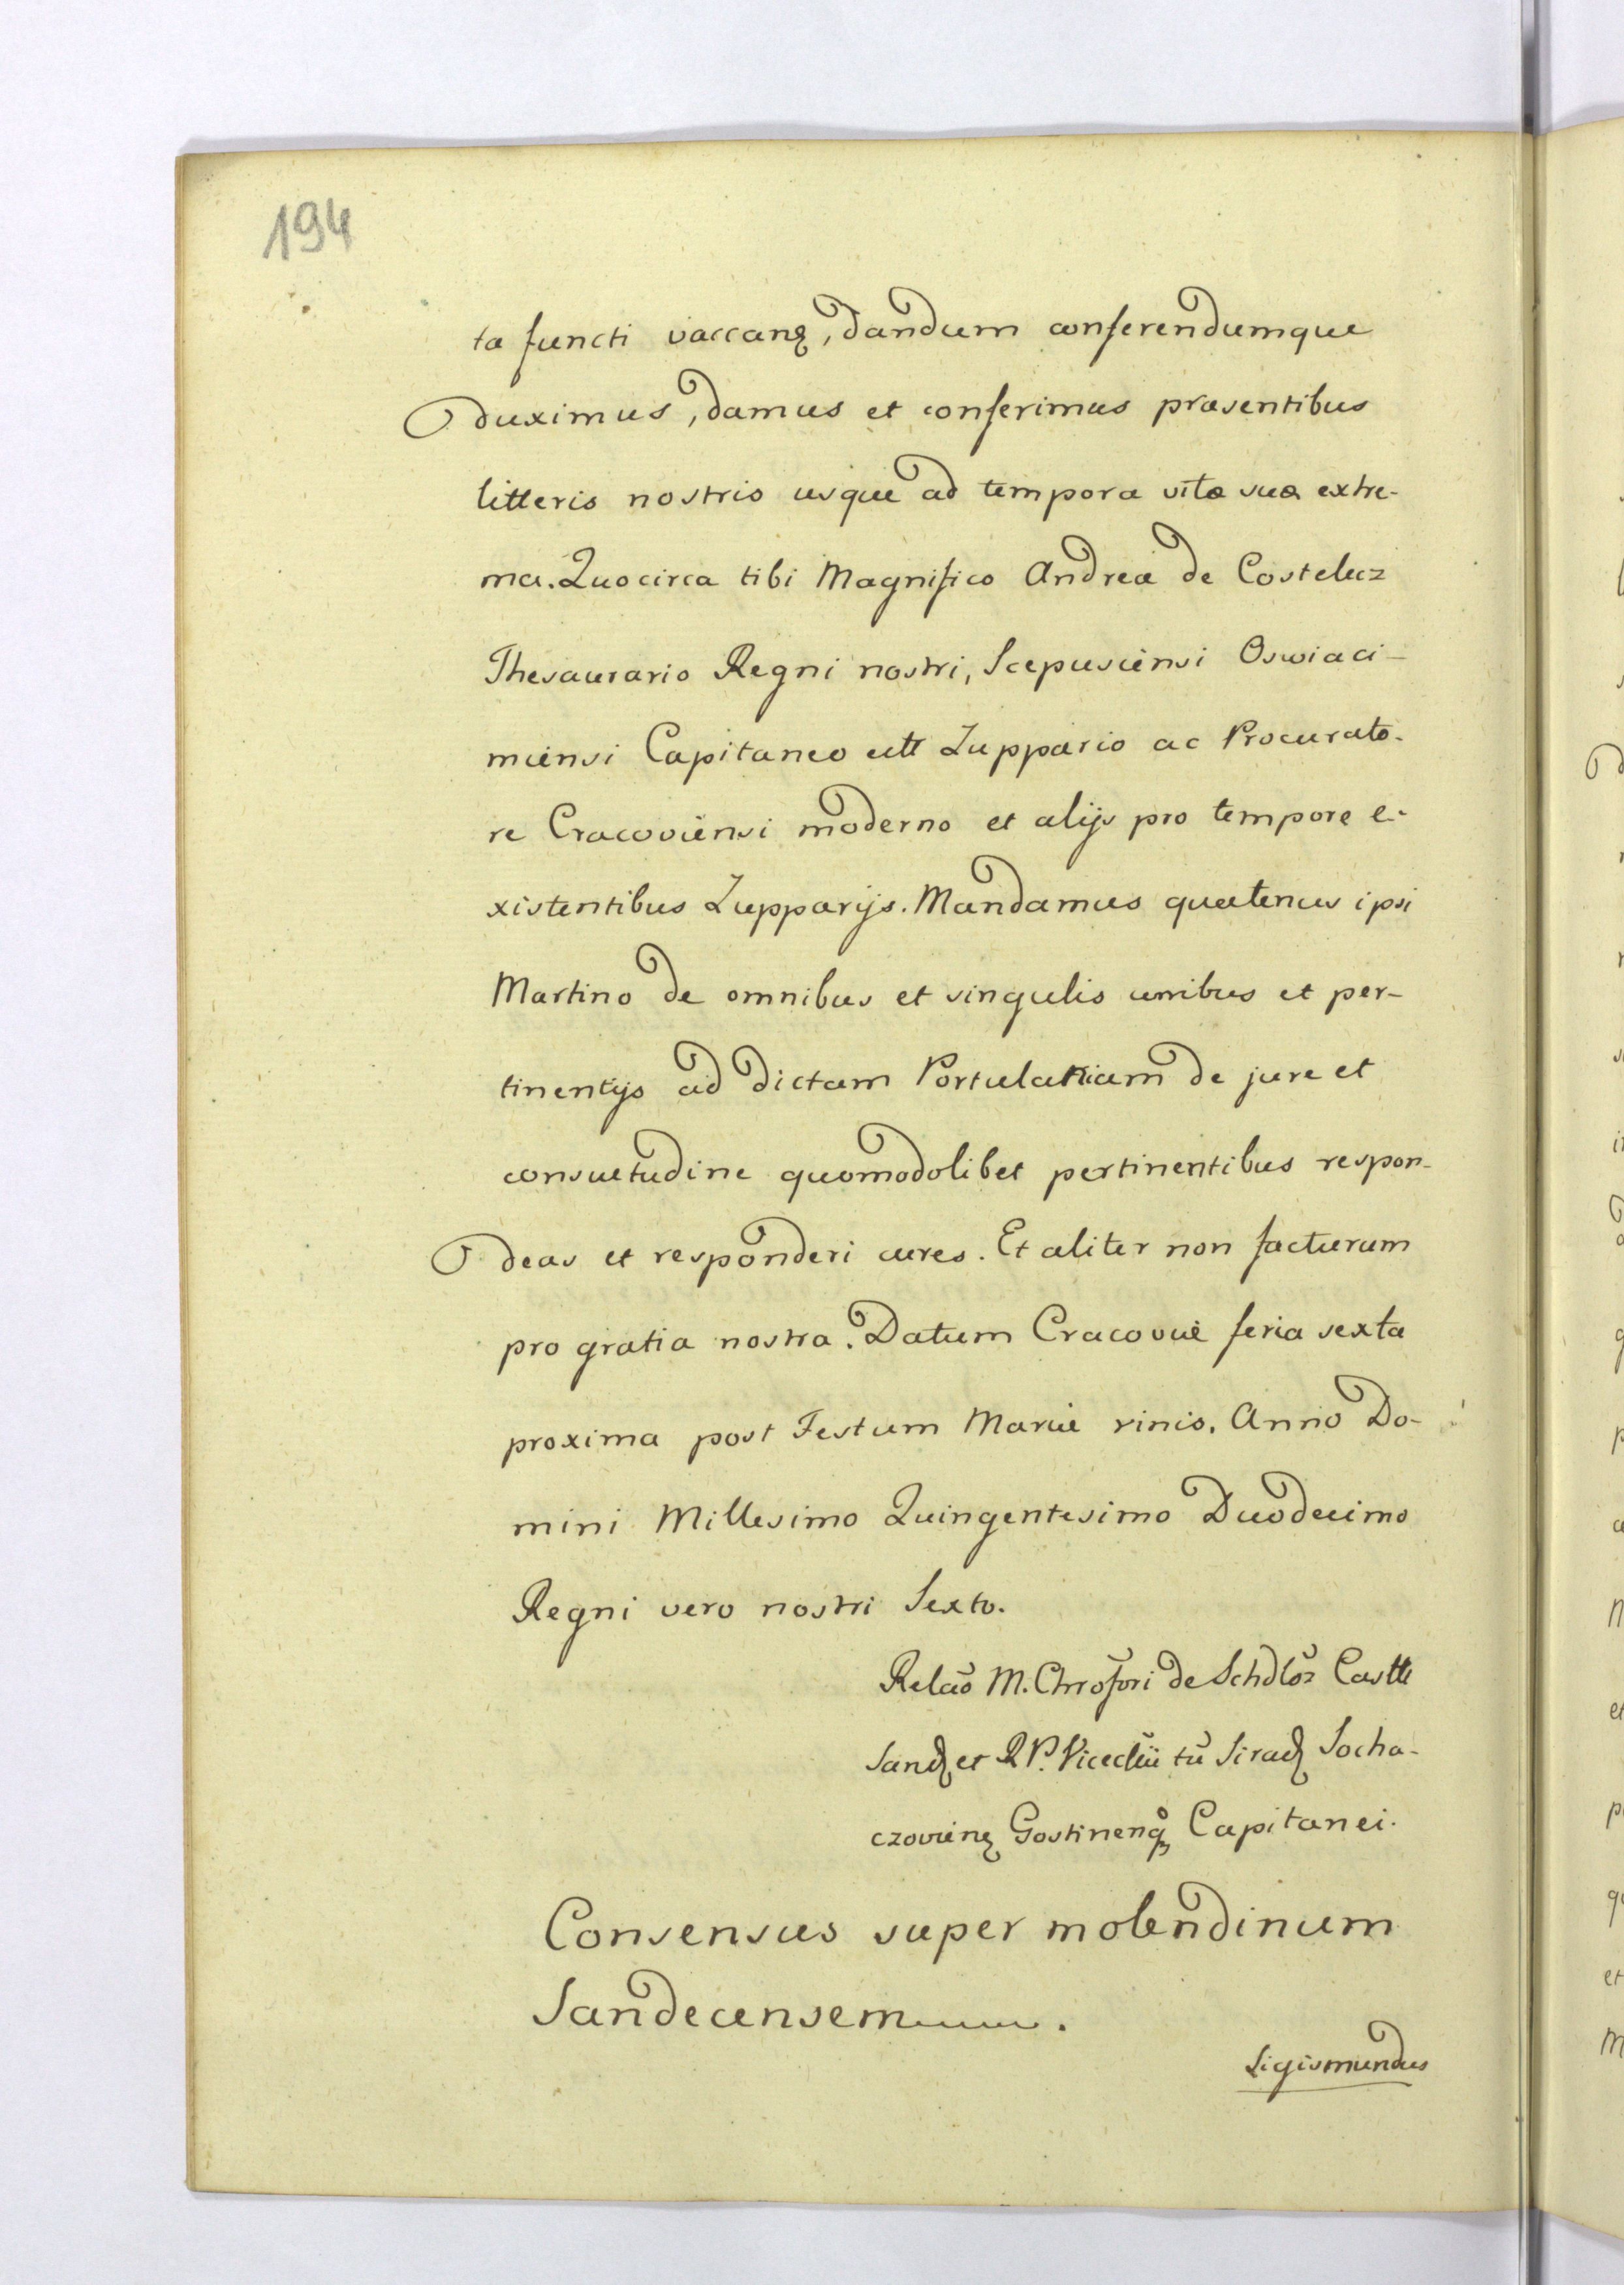 194
ta functi vaccanꝫ, dandum conferendumque
duximus, damus et conferimus præsentibus
litteris nostris usque ad tempora vitæ suæ extre-
ma. Quocirca tibi Magnifico Andreæ de Costelecz
Thesaurario Regni nostri, Scepusiensi Oswiaci-
miensi Capitaneo Zuppario ac Procurato-
re Cracoviensi moderno et alijs pro tempore e-
xistentibus Zupparijs. Mandamus quatenus ipsi
Martino de omnibus et singulis et per-
tinentijs ad dictam Portulaniam de jure et
consuetudine quomodolibet pertinentibus respon-
deas et responderi cures. Et aliter non facturum
pro gratia nostra. Datum Cracoviæ feria sexta
proxima post Festum Mariæ vinis. Anno Do-
mini Millesimo Quingentesimo Duodecimo
Regni vero nostri Sexto.
Relaõ M. Chrõfori de Schdloz Castll
Sandꝫ et R P. tũ Siradꝫ Socha-
czovienꝫ Gostinenqꝫ Capitanei.
Consensus super molendinum
Sandecensem.
Sigismundus